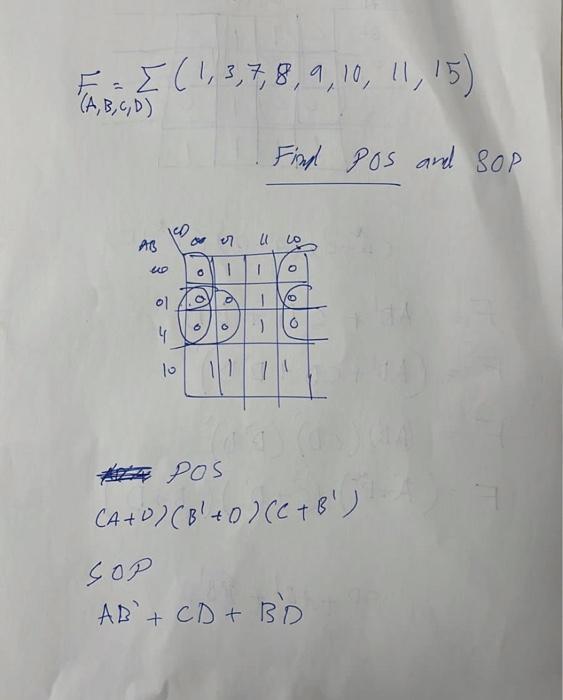 F = Σ ( 1, 3, 7, 8, 9, 10, 11, 15)
(A,B,C,D)
Find POS and SOP
AB \ CD 00 01 11 10
00 0 1 1 0
01 0 0 1 0
11 0 0 1 0
10 1 1 1 1
POS
(A+D)(B'+D)(C+B')
SOP
AB' + CD + B'D